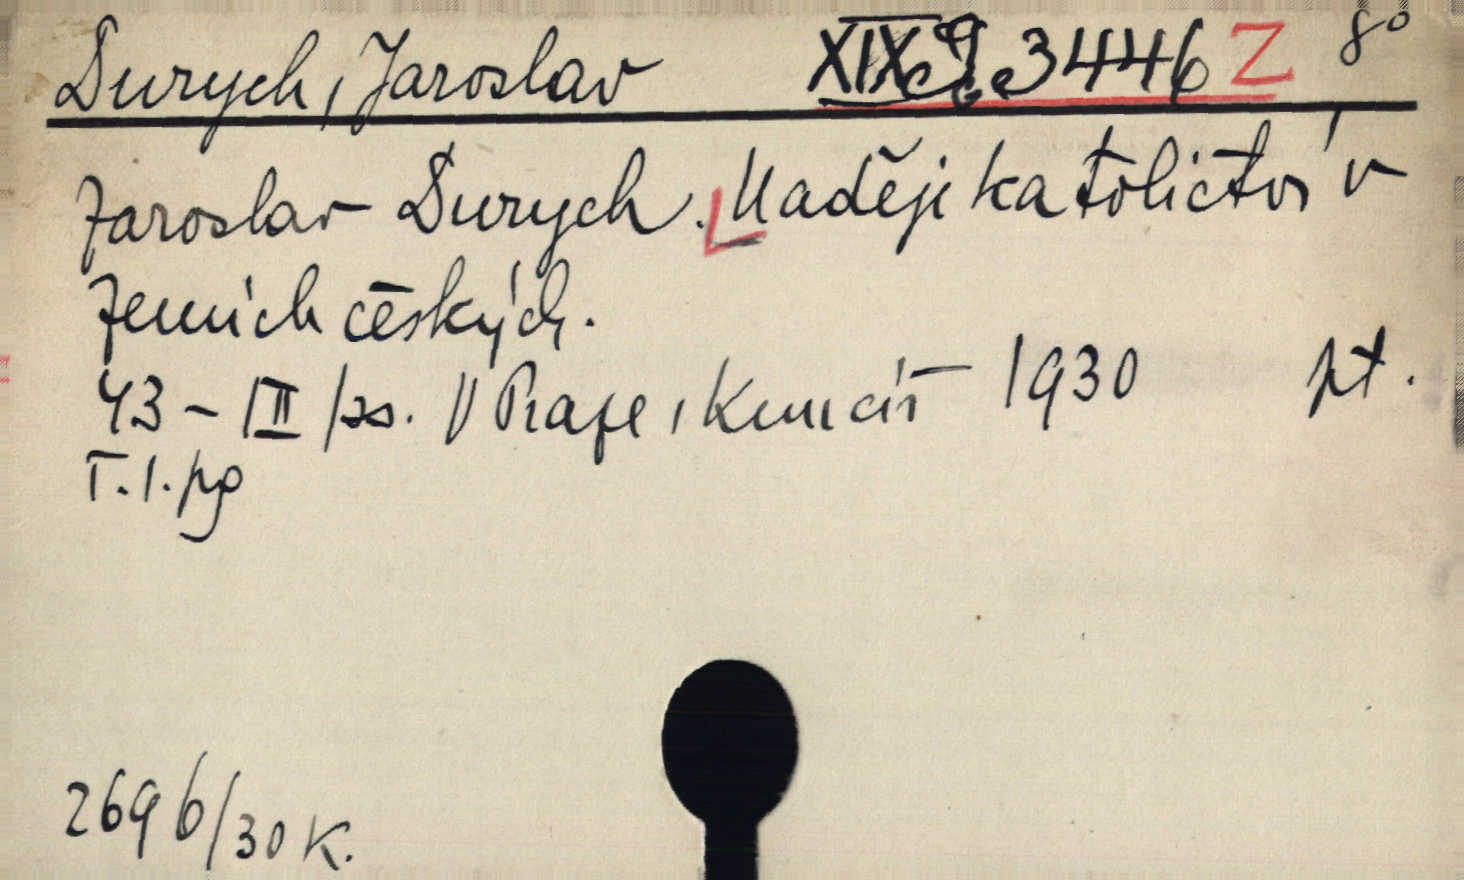 Durych, Jaroslav 3446 Z 8°
Jaroslav Durych. Naděje katolictví v
zemích českých.
43 - III ss. V Praze, Kuncíř 1930 pt.
T. 1. pg
2696/30 K.